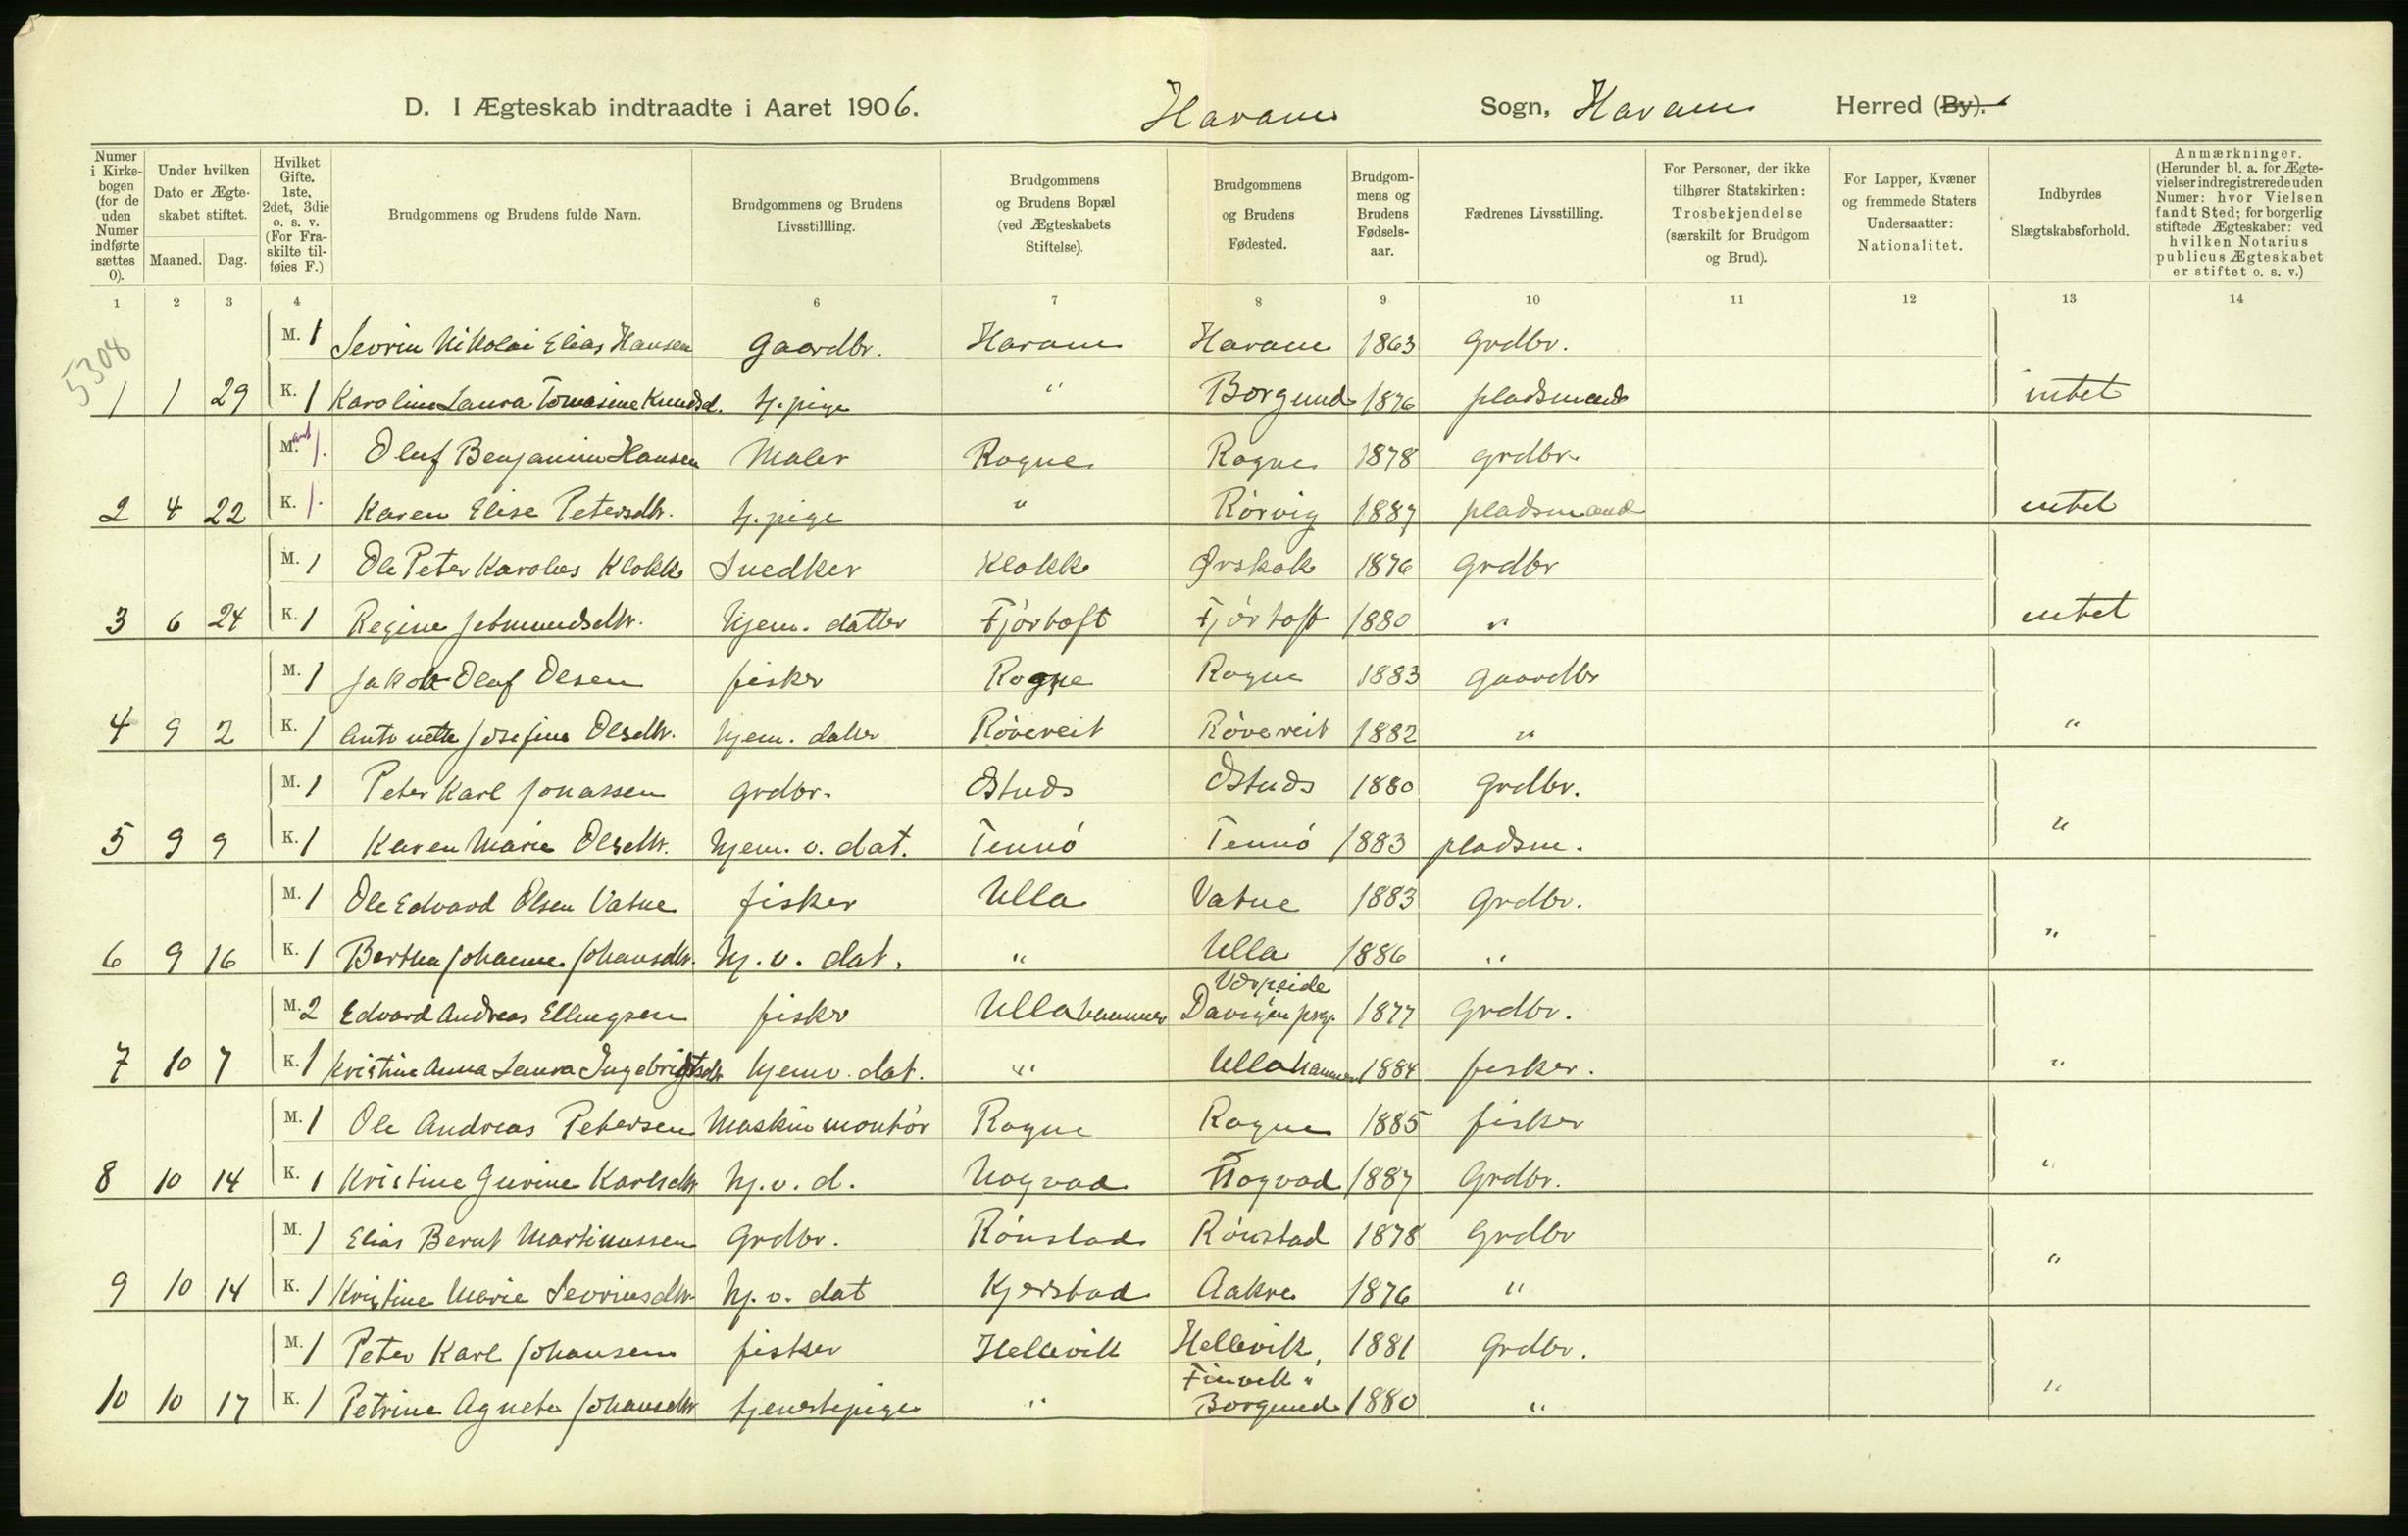 D. I Ægteskab indtraadte i Aaret 1906. Haram Sogn, Haram Herred (By).
Numer i Kirkebogen (for de uden Numer indførte sættes 0).
Under hvilken Dato er Ægteskabet stiftet.
Maaned. Dag.
Hvilket Gifte. 1ste, 2det, 3die o. s. v. (For Fraskilte tilføies F.)
Brudgommens og Brudens fulde Navn.
Brudgommens og Brudens Livsstillling.
Brudgommens og Brudens Bopæl (ved Ægteskabets Stiftelse).
Brudgommens og Brudens Fødested.
Brudgommens og Brudens Fødselsaar.
Fædrenes Livsstilling.
For Personer, der ikke tilhører Statskirken: Trosbekjendelse (særskilt for Brudgom og Brud).
For Lapper, Kvæner og fremmede Staters Undersaatter: Nationalitet.
Indbyrdes Slægtskabsforhold.
Anmærkninger. (Herunder bl. a. for Ægtevielser indregistrerede uden Numer: hvor Vielsen fandt Sted; for borgerlig stiftede Ægteskaber: ved hvilken Notarius publicus Ægteskabet er stiftet o. s. v.)
1 2 3 4 6 7 8 9 10 11 12 13 14
5308
M. 1 Sevrin Nikolai Elias Hansen Gaardbr. Haram Haram 1863 Grdbr.
1 1 29 K. 1 Karoline Laura Tomasine Knudsd. tj. pige " Borgund 1876 pladsmand intet
M. 1. Oluf Benjamin Hansen Maler Rogne Rogne 1878 grdbr.
2 4 22 K. 1. Karen Elise Petersdtr. tj. pige " Rörvig 1887 pladsmand intet
M. 1 Ole Peter Karolus Klokk Snedker Klokk Ørskok 1876 Grdbr
3 6 24 K. 1 Regine Jetmundsdtr. hjem. datter Fjörtoft Fjörtoft 1880 " intet
M. 1 Jakob Olaf Olsen fisker Rogne Rogne 1883 Gaardbr
4 9 2 K. 1 Antonette Josefine Olsdtr. hjem. datter Rövereit Rövereit 1882 " "
M. 1 Peter Karl Jonassen grdbr. Östnds Östnds 1880 Grdbr.
5 9 9 K. 1 Karen Marie Olsdtr. hjem. v. dat. Tennö Tennö 1883 pladsm. "
M. 1 Ole Edvard Olsen Vatne fisker Ulla Vatne 1883 Grdbr.
6 9 16 K. 1 Bertha Johanne Johansdtr. hj. v. dat. " Ulla 1886 " "
M. 2 Edvard Andreas Ellingsen fisker Ullahammer Davigen prgj. 1877 Grdbr.
7 10 7 K. 1 Kristine Anna Laura Ingebrigtsdtr hjem v. dat. " Ullahammer 1884 fisker. "
M. 1 Ole Andreas Petersen Maskinmontör Rogne Rogne 1885 fisker
8 10 14 K. 1 Kristine Gurine Karlsdtr hj. v. d. Uogvad Uogvad 1887 Grdbr. "
M. 1 Elias Bernt Martinussen Grdbr. Rönstad Rönstad 1878 Grdbr
9 10 14 K. 1 Kristine Marie Sevrinsdtr hj. v. dat Kjerstad Aakre 1876 " "
M. 1 Peter Karl Johansen fisker Hellevik Hellevik, 1881 Grdbr.
10 10 17 K. 1 Petrine Agnete Johansdtr tjenestepige " Borgund 1880 " "